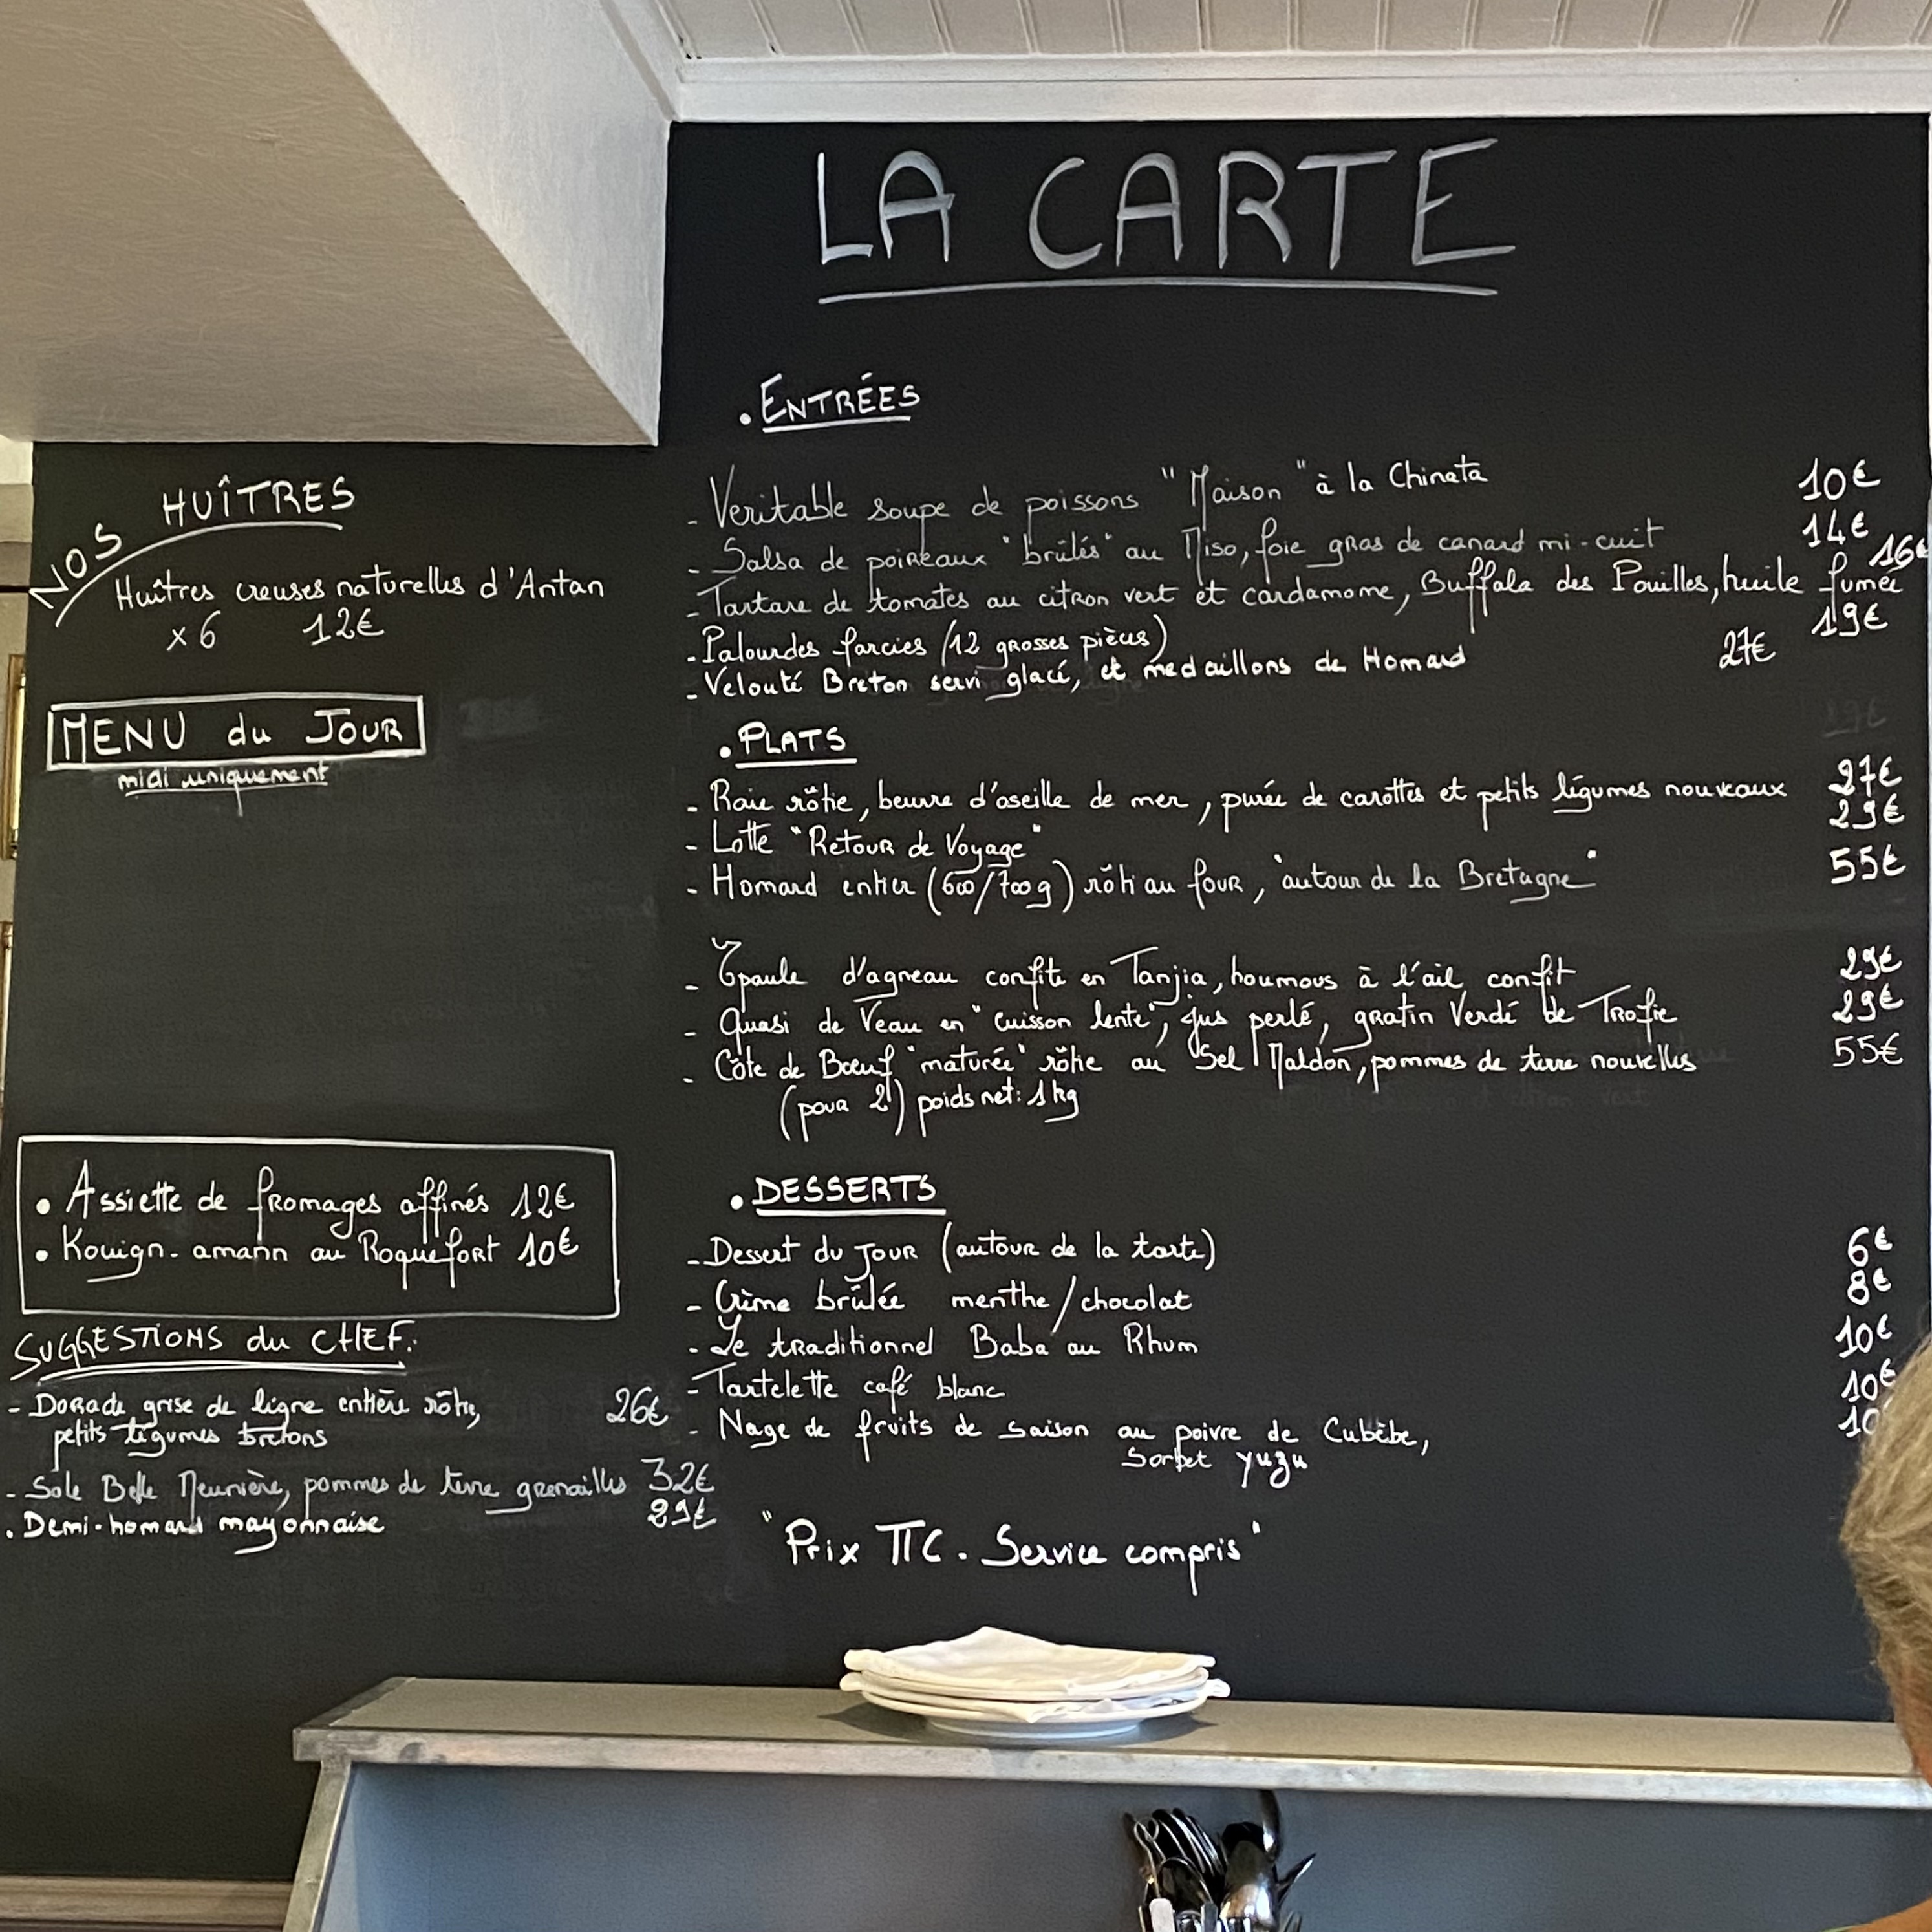 LA CARTE
NOS HUÎTRES
Huîtres creuses naturelles d'Antan
x 6 12€
MENU du JOUR
midi uniquement
• Assiette de fromages affinés 12€
• Kouign-amann au Roquefort 10€
SUGGESTIONS du CHEF:
- Dorade grise de ligne entière rôtie, 26€
petits légumes bretons
- Sole Belle Meunière, pommes de terre grenailles 32€
. Demi-homard mayonnaise 29€
• ENTRÉES
- Veritable soupe de poissons "Maison" à la Chinata 10€
- Salsa de poireaux "brûlés" au Miso, foie gras de canard mi-cuit 14€
- Tartare de tomates au citron vert et cardamome, Buffala des Pouilles, huile fumée 16€
- Palourdes farcies (12 grosses pièces) 19€
- Velouté Breton servi glacé, et medaillons de Homard 27€
• PLATS
- Raie rôtie, beurre d'oseille de mer, purée de carottes et petits légumes nouveaux 27€
- Lotte "Retour de Voyage" 29€
- Homard entier (600/700g) rôti au four, "autour de la Bretagne" 55€
- Épaule d'agneau confite en Tanjia, houmous à l'ail confit 29€
- Quasi de Veau en "cuisson lente", jus perlé, gratin Verdé de Trofie 29€
- Côte de Bœuf "maturée" rôtie au Sel Maldon, pommes de terre nouvelles 55€
(pour 2) poids net: 1kg
• DESSERTS
- Dessert du Jour (autour de la tarte) 6€
- Crème brûlée menthe/chocolat 8€
- Le traditionnel Baba au Rhum 10€
- Tartelette café blanc 10€
- Nage de fruits de saison au poivre de Cubèbe, 10
Sorbet yuzu
"Prix TTC. Service compris"